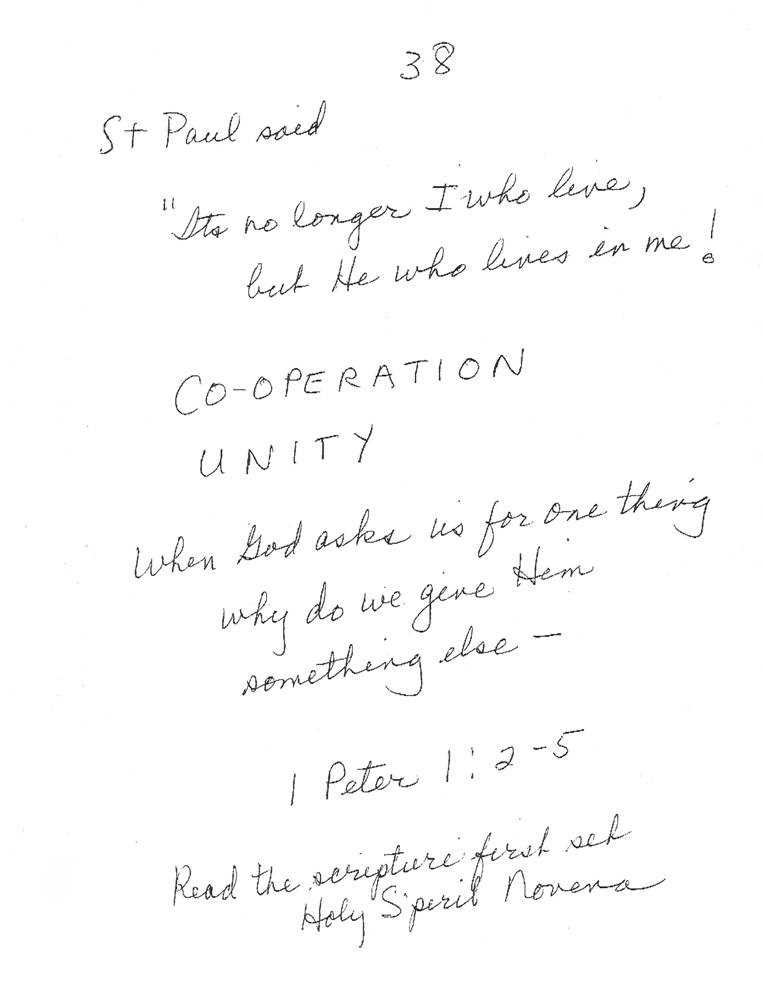 38
St Paul said
"Its no longer I who live,
but He who lives in me!
CO-OPERATION
UNITY
When God asks us for one thing
why do we give Him
something else —
1 Peter 1:2-5
Read the scripture first set
Holy Spirit Novena